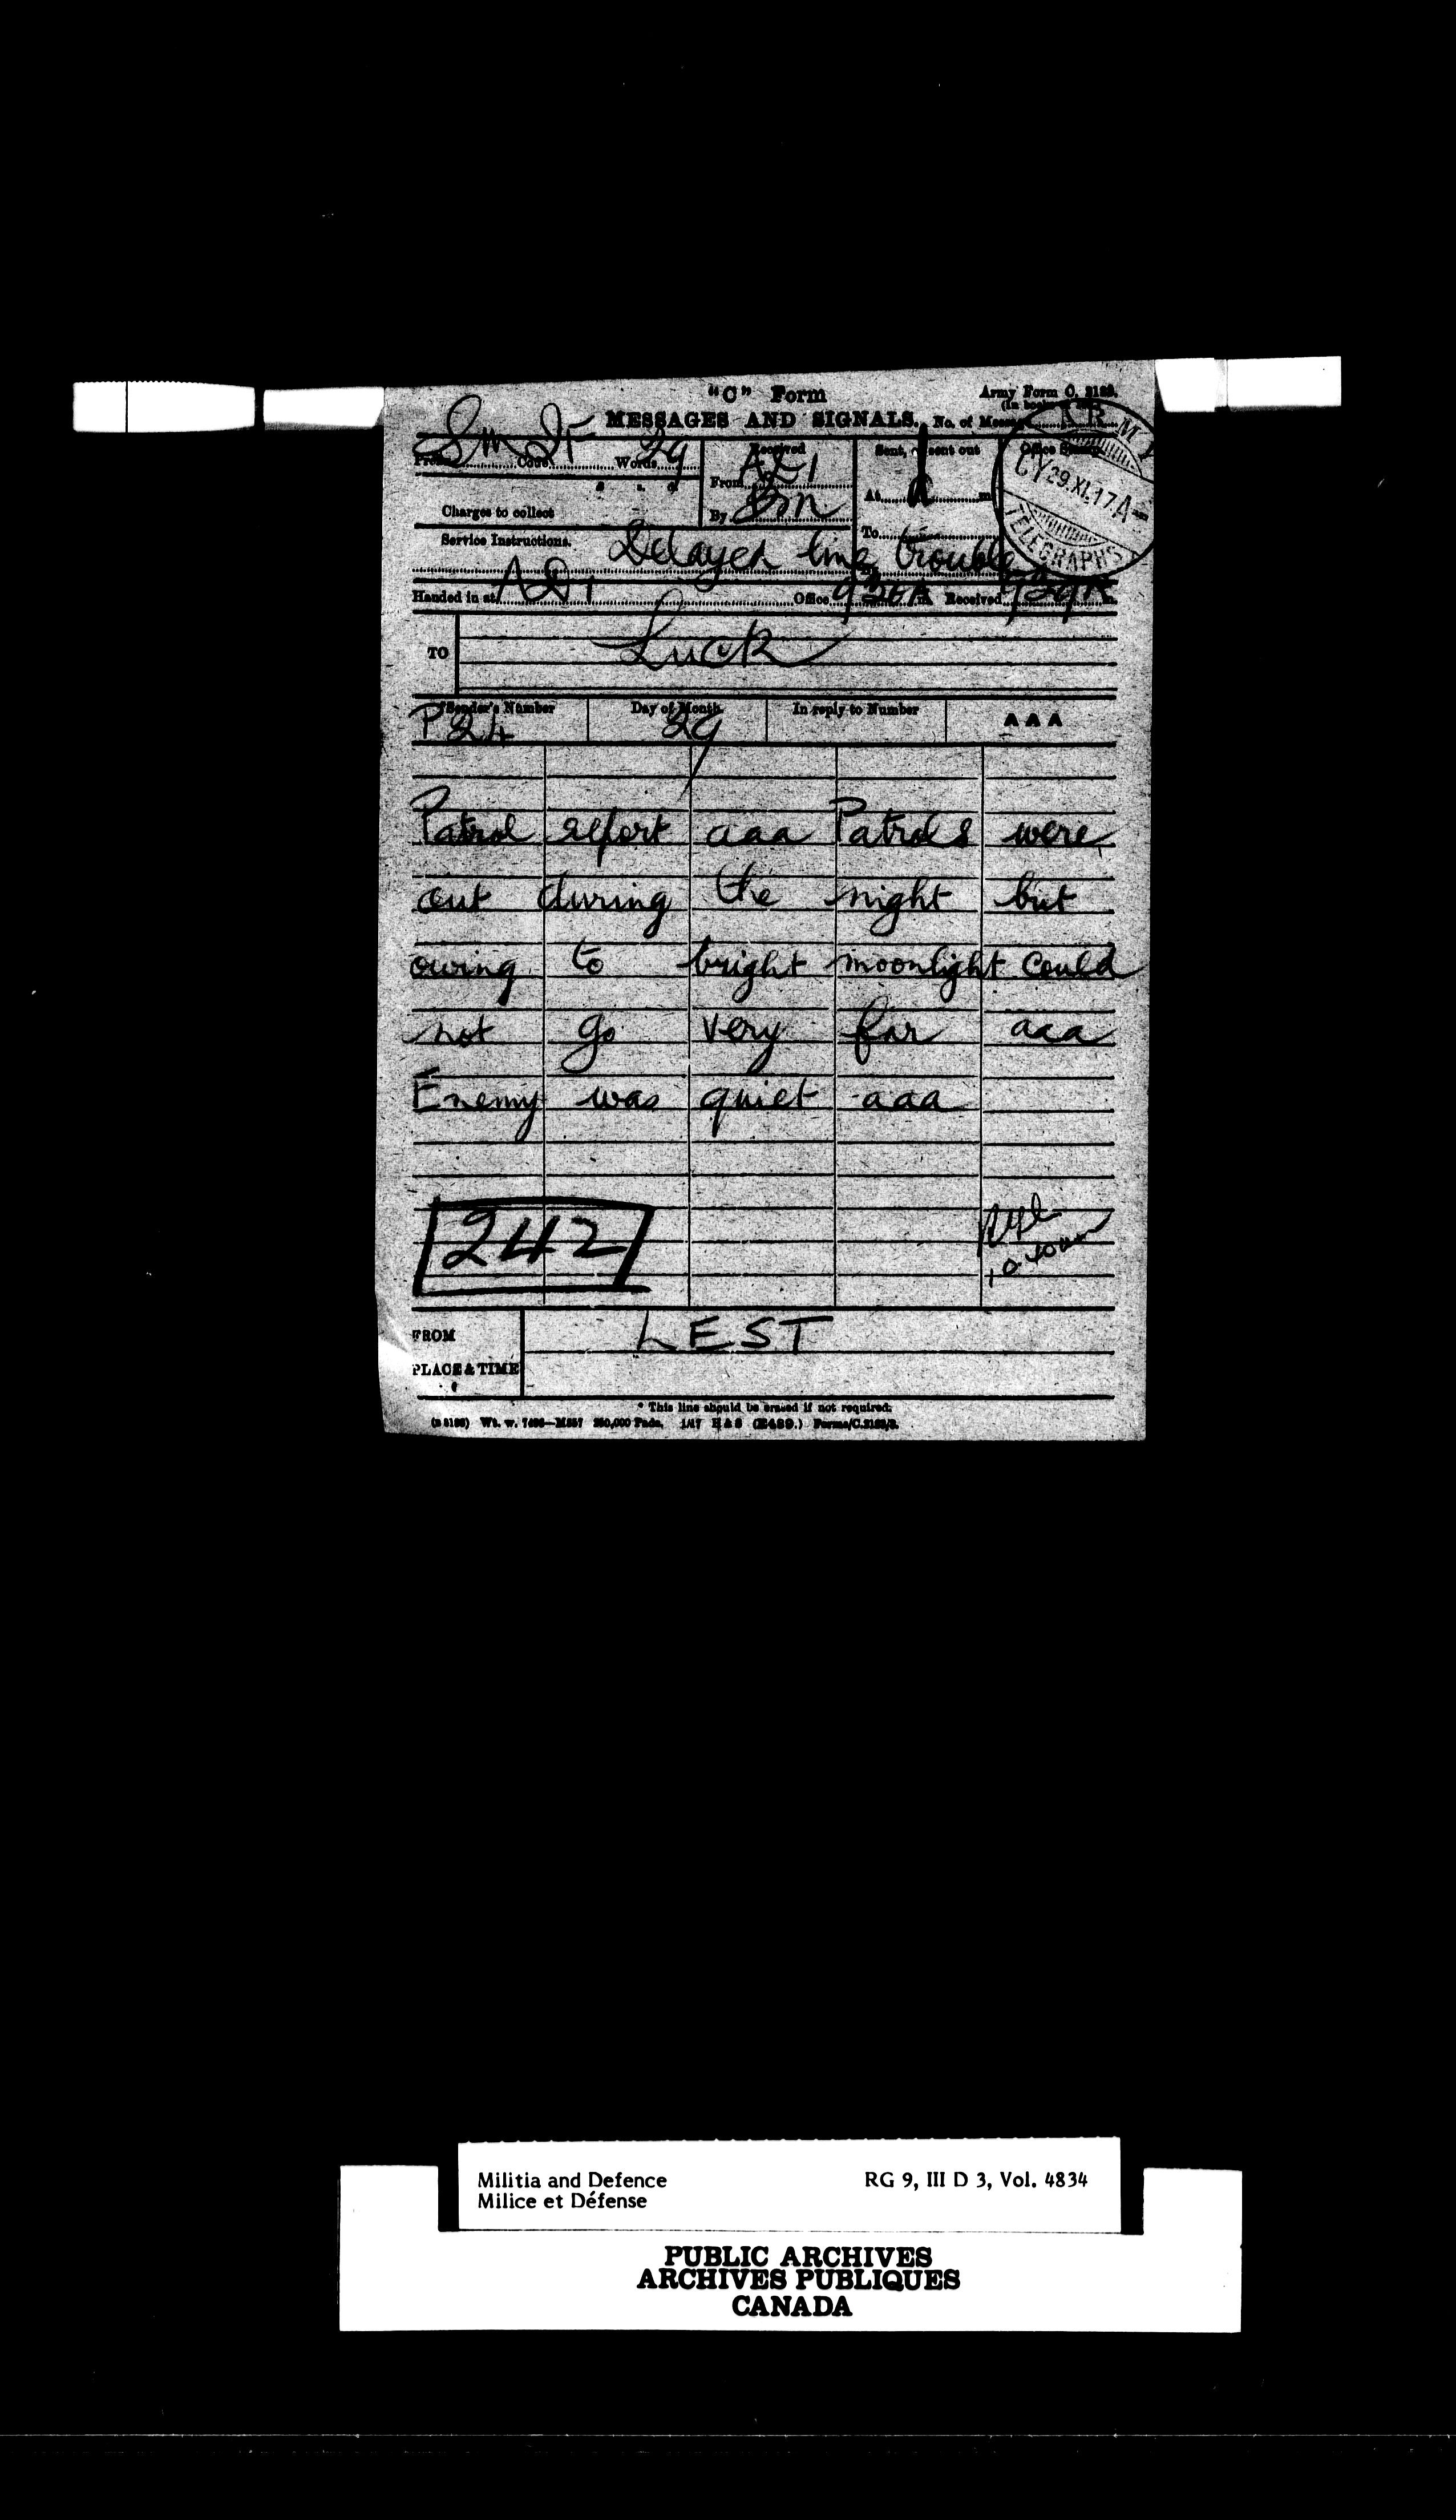 "C" Form
Army Form C. 2123.
MESSAGES AND SIGNALS. No. of Message
Code Words 29
Received Sent, or sent out Office Stamp
From AD1
At m
ARMY
CY 29.XI.17.A
TELEGRAPHS
By Bm
To
Charges to collect
Service Instructions. Delayed line trouble
Handed in at AD1 Office m Received m
TO Luck
*Sender's Number Day of Month In reply to Number AAA
P24 29
Patrol report aaa Patrols were
out during the night but
owing to bright moonlight could
not go very far aaa
Enemy was quiet aaa
242
10.40am
FROM LEST
PLACE & TIME
* This line should be erased if not required.
250,000 Pads. 1/17
Militia and Defence RG 9, III D 3, Vol. 4834
Milice et Défense
PUBLIC ARCHIVES
ARCHIVES PUBLIQUES
CANADA